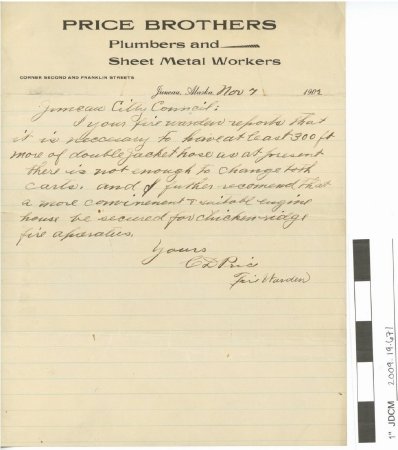 PRICE BROTHERS
Plumbers and
Sheet Metal Workers
CORNER SECOND AND FRANKLIN STREETS
Juneau, Alaska, Nov 7 190
Juneau Citty Council:
I your fire warden reports that
it is neccesary to have at least 300 ft
more of double jacket hose as at present
there is not enough to change both
carts. and I futher recomend that
a more convinenent & suitable engine
house be secured for Chicken ridge
fire aperatics.
Yours
C D Price
Fire Warden
1" JDCM 2009.19.671